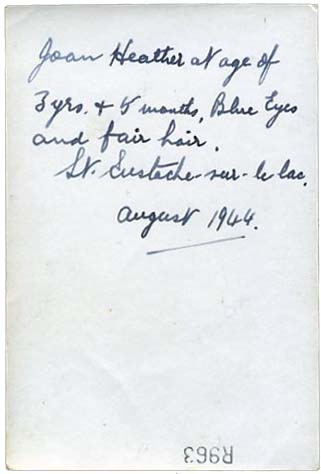 Joan Heather at age of
3 yrs. + 5 months, Blue Eyes
and fair hair.
St. Eustache-sur-le-lac.
August 1944.
R963